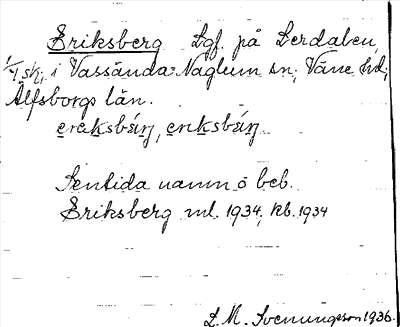 Eriksberg Lgf. på Lerdalen,
i Vassända-Naglum sn; Väne hd;
Älfsborgs län.
Sentida namn o beb.
Eriksberg ml. 1934, kb. 1934
L. M. Svenungsson 1936.